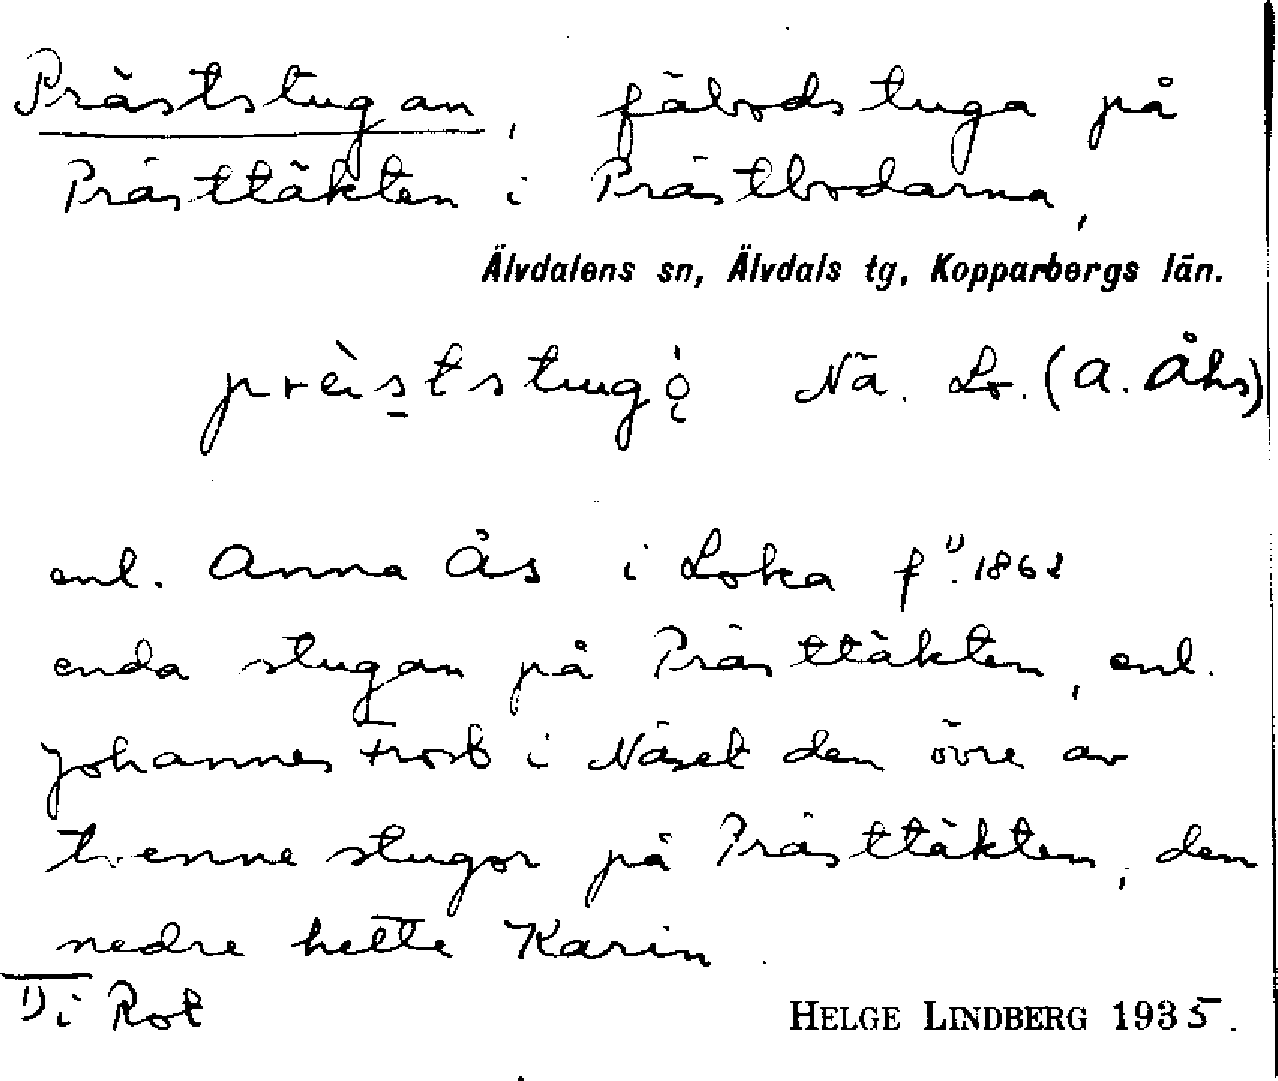 Präststugan, fäbodstuga på
Prästtäkten i Prästbodarna,
Älvdalens sn, Älvdals tg, Kopparbergs län.
Nä. Lo. (A. Åhs)
enl. Anna Ås i Loka f.¹⁾ 1862
enda stugan på Prästtäkten, enl.
Johannes Frost i Näset den övre av
tvenne stugor på Prästtäkten, den
nedre hette Karin.
¹⁾ i Rot
HELGE LINDBERG 1935.